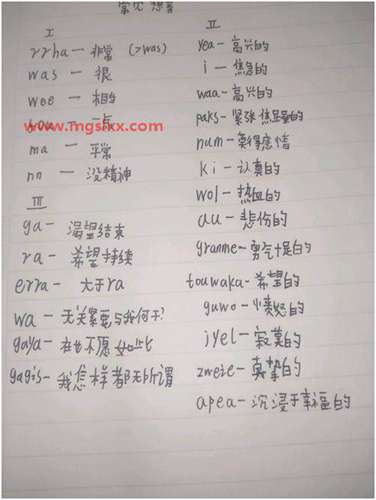 常见想音
I
rrha — 非常 (>was)
was — 很
wee — 相当
www.mgsixx.com
— 一点
ma — 平常
nn — 没精神
III
ga — 渴望结束
ra — 希望持续
erra — 大于ra
wa — 无关紧要与我何干?
gaya — 在也不愿如此
gagis — 我怎样都无所谓
II
yea — 高兴的
i — 焦急的
waa — 高兴的
paks — 紧张
num — 莫得感情
ki — 认真的
wol — 热血的
au — 悲伤的
granme — 勇气十足的
touwaka — 希望的
guwo — 愤怒的
iyel — 寂寞的
zweie — 真挚的
apea — 沉浸于幸福的